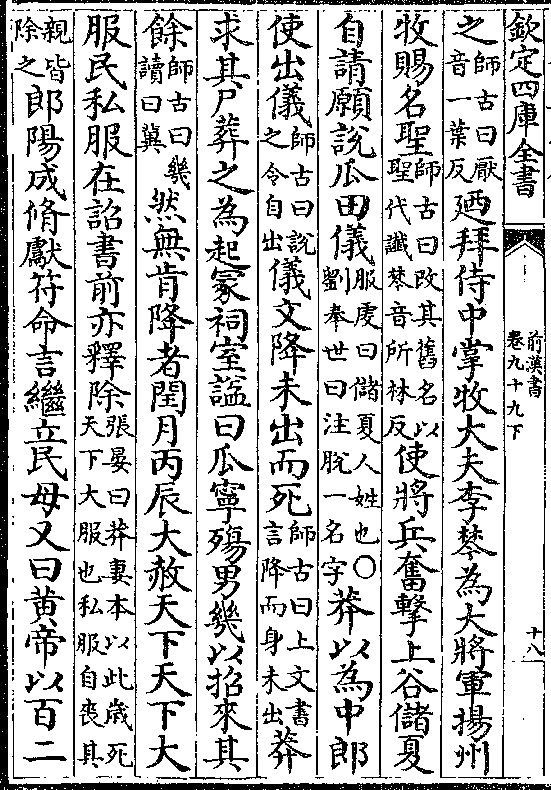 欽定四庫全書
前漢書
卷九十九下
十八
之師古曰厭音一葉反廼拜侍中掌牧大夫李棽為大將軍揚州
牧賜名聖師古曰改其舊名以聖代讖棽音所林反使將兵奮擊上谷儲夏
自請願說瓜田儀服虔曰儲夏人姓也〇劉奉世曰注脫一名字莽以為中郎
使出儀師古曰說之令自出儀文降未出而死師古曰上文書言降而身未出莽
求其尸葬之為起冢祠室諡曰瓜寧殤男幾以招來其
餘師古曰幾讀曰冀然無肯降者閏月丙辰大赦天下天下大
服民私服在詔書前亦釋除張晏曰莽妻本以此歲死天下大服也私服自喪其
親皆除之郎陽成脩獻符命言繼立民母又曰黄帝以百二